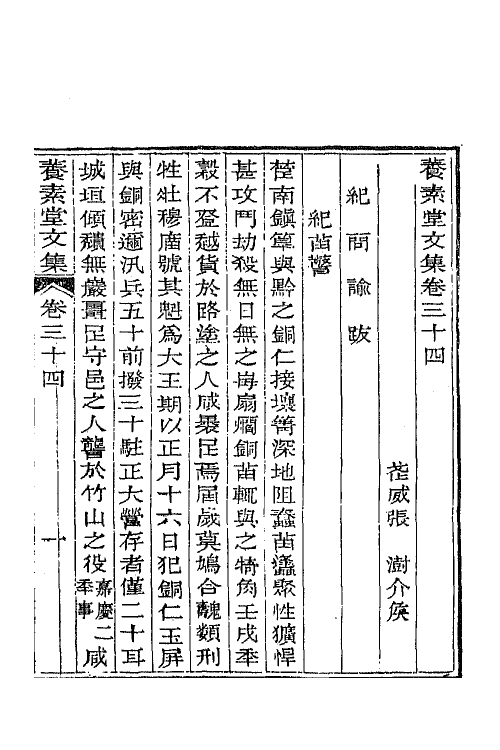 養素堂文集卷三十四
武威張 澍介矦
紀 問 諭 跋
紀苗警
楚南鎮筸與黔之銅仁接壤箐深地阻蠢苗蟻聚性獷悍
甚攻鬥劫殺無日無之每扇爛銅苗輒與之犄角壬戌秊
穀不登越貨於路塗之人咸褁足焉屆歲莫鳩合醜類刑
牲牡穆廟號其魁為大王期以正月十六日犯銅仁玉屏
與銅密邇汛兵五十前撥三十駐正大營存者僅二十耳
城垣傾穨無巖畺足守邑之人讋於竹山之役嘉慶二秊事咸
養素堂文集 卷三十四 一